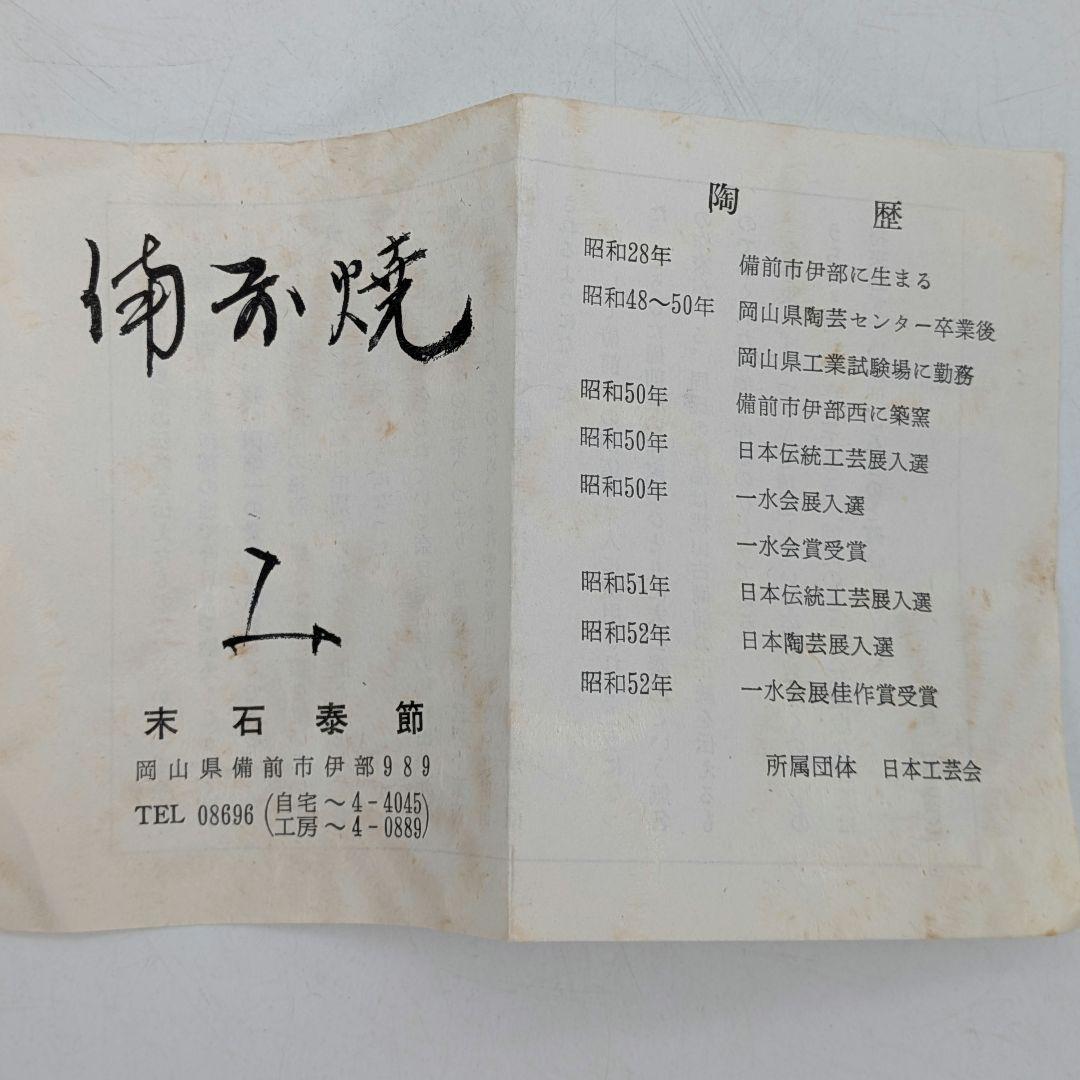 備前焼
末石泰節
岡山県備前市伊部989
TEL 08696 (自宅～4-4045
工房～4-0889)
陶歴
昭和28年 備前市伊部に生まる
昭和48～50年 岡山県陶芸センター卒業後
岡山県工業試験場に勤務
昭和50年 備前市伊部西に築窯
昭和50年 日本伝統工芸展入選
昭和50年 一水会展入選
一水会賞受賞
昭和51年 日本伝統工芸展入選
昭和52年 日本陶芸展入選
昭和52年 一水会展佳作賞受賞
所属団体 日本工芸会